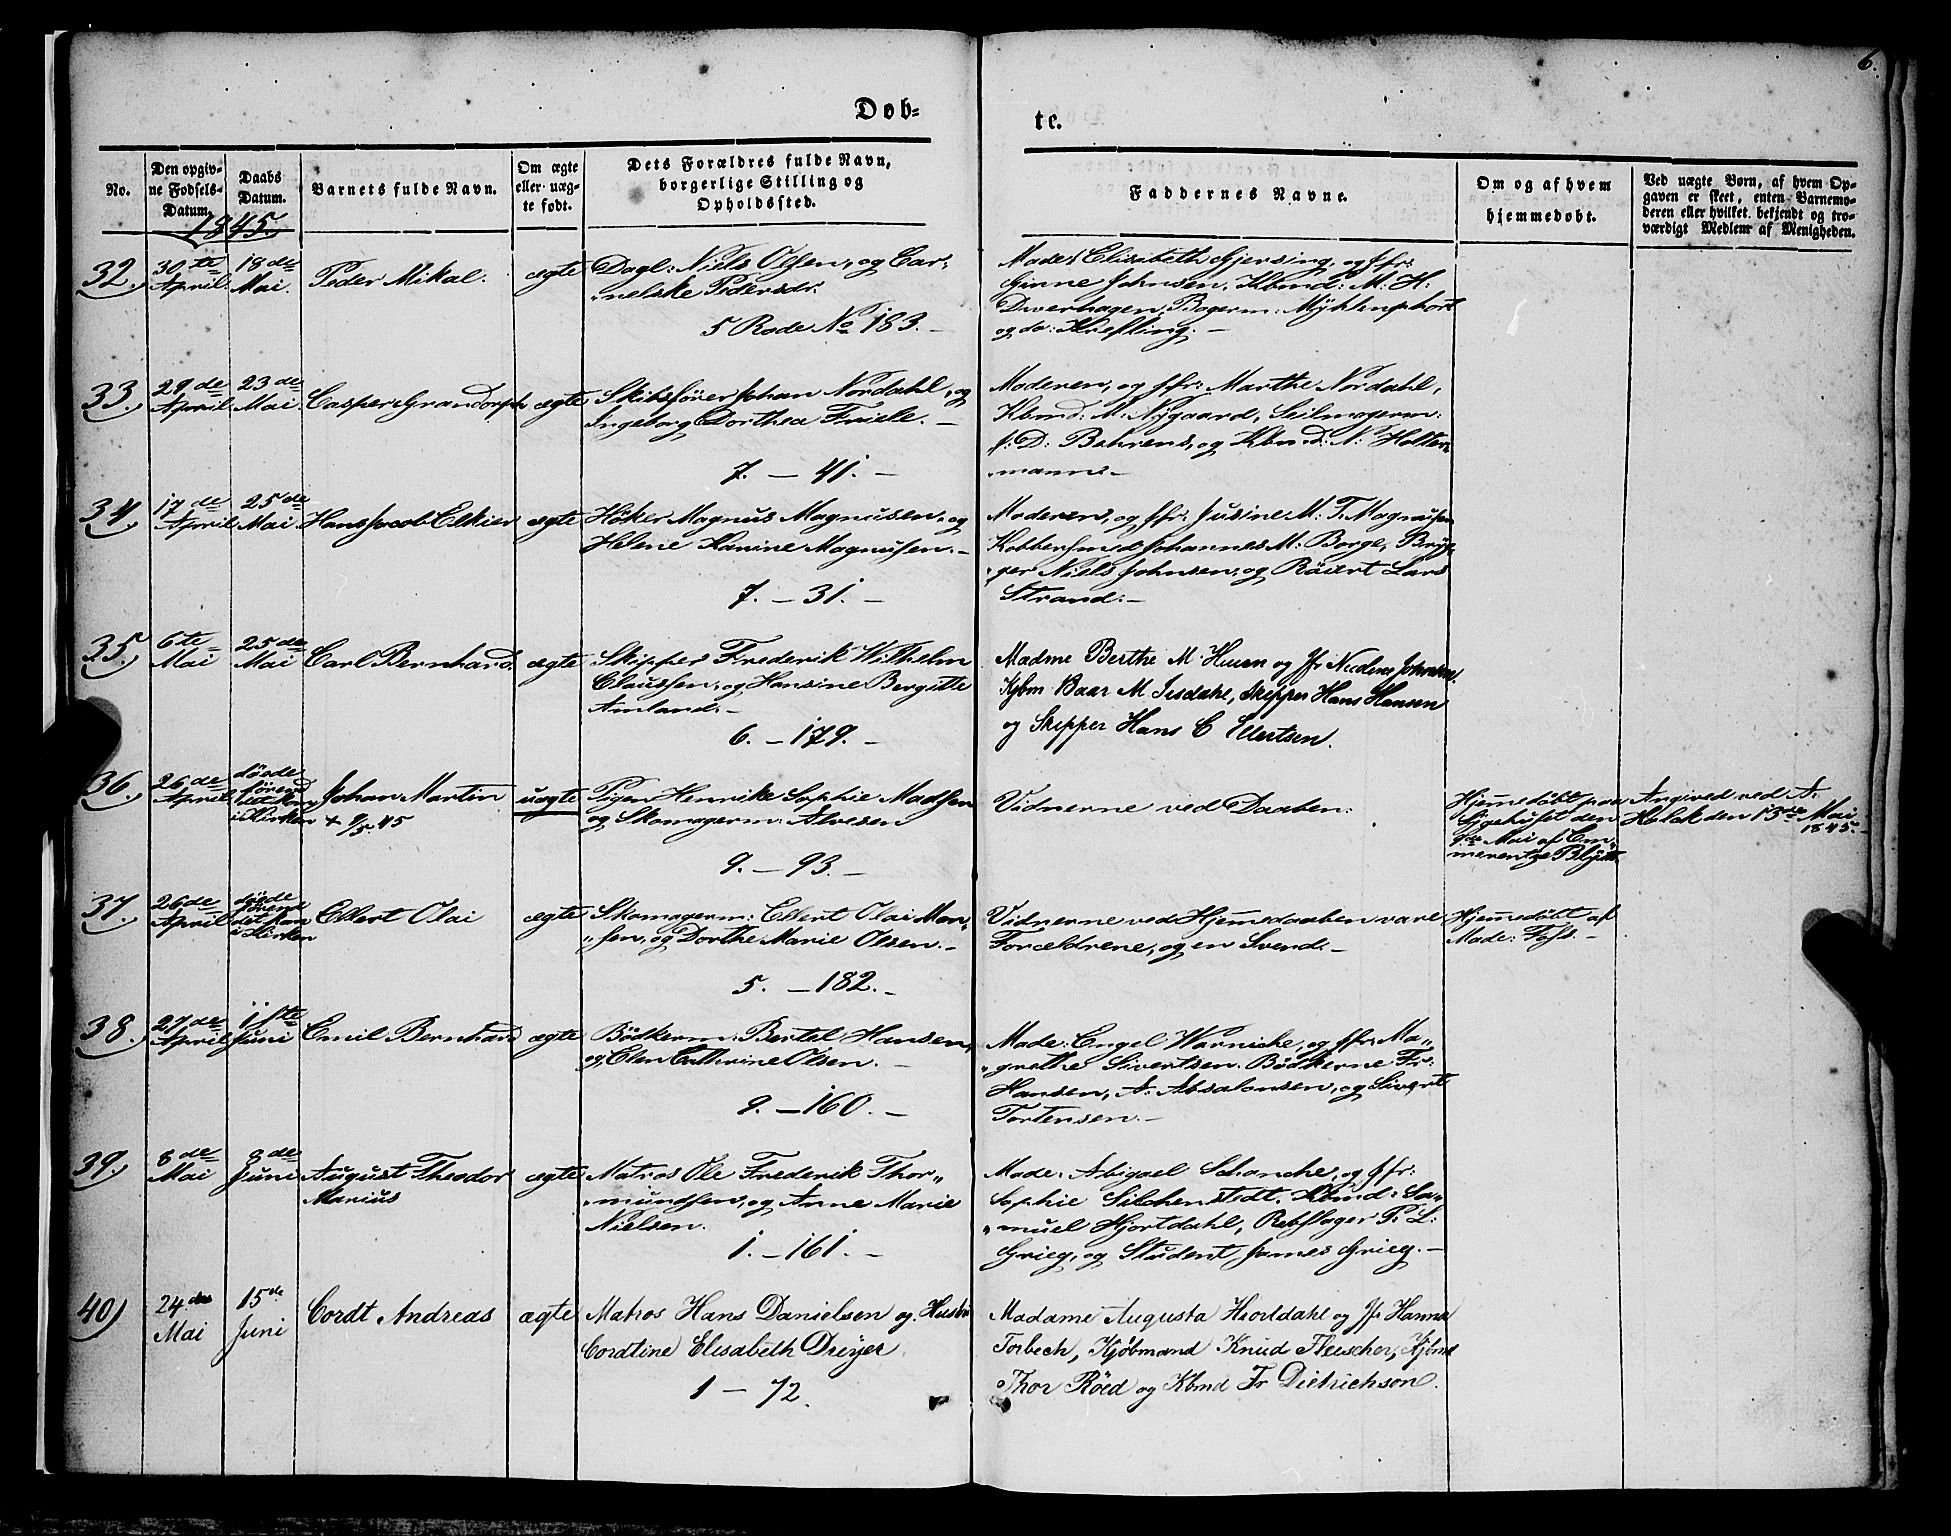 6.
Døb=
te.
No.
Den opgiv-
ne Fødsels-
Datum.
Daabs
Datum.
Barnets fulde Navn.
Om ægte
eller uæg-
te født.
Dets Forældres fulde Navn,
borgerlige Stilling og
Opholdssted.
Faddernes Navne.
Om og af hvem
hjemmedøbt.
Ved uægte Børn, af hvem Op-
gaven er skeet, enten Barnemo-
deren eller hvilket bekjendt og tro-
værdigt Medlem af Menigheden.
1845.
32.) 30te April. 18de Mai. Peder Mikal. ægte
Dagl: Niels Olsen, og Cor-
nelske Pedersdr:
5 Rode No 183.
Made: Elisabeth Gjersing, og Jfr:
Ginne Johnsen, Kbmd: M: H:
Dwerhagen, Bagerm:
og do: Krefting.
33.) 29de April 23de Mai. Casper Grandorph ægte
Skibsfører Johan Nordahl, og
Ingeborg Dorthea Friele.
7. — 41. —
Moderen, og Jfr: Marthe Nordahl,
Kbmd: M: Nygaard, Seilmagerm:
J: D: Behrens, og Kbmd: N: Holter-
mann.
34.) 17de April 25de Mai Hans Jacob Elkier ægte
Høker Magnus Magnusen, og
Helene Karine Magnusen.
7. — 31. —
Moderen, og Jfr: Jusine M: T: Magnusen
Kobbersmed Johannes M: Borge, Bryg-
ger Niels Johnsen, og Røiert Lars
Strand.
35.) 6te Mai 25de Mai Carl Bernhard. ægte
Skipper Frederik Wilhelm
Claussen, og Hansine Bergitte
Amland.
6. — 179. —
Madme Berthe M Huun og Jfr
Kjbm Baar M Isdahl, Skipper Hans Hansen
og Skipper Hans C Ellertsen.
36.) 26de April døde førend det kom i Kirken Johan Martin uægte
+ 9/5 45
Pigen Henrike Sophie Madsen
og Skomagerm: Alvesen
9. — 93. —
Vidnerne ved Daaben.
Hjemmedøbt paa
Sygehuset den
9de Mai af Em-
merentze Blytt.
Angived ved A:
Holck den 13de Mai
1845.
37.) 26de April døde førend det kom i Kirken Ellert Olai ægte
Skomagerm: Ellert Olai Mon-
sen, og Dorthe Marie Olsen.
5. — 182. —
Vidnerne ved Hjemmedaaben vare
Forældrene, og en Svend.
Hjemmedøbt af
Made: Foss.
38.) 27de April 1ste Juni Emil Bernhard ægte
Bødkerm: Bertel Hansen,
og Elen Cathrine Olsen.
9. — 160. —
Made: Engel Warnicke, og Jfr: Ma-
grethe Sivertsen. Bødkerne Fr:
Hansen, A: Absalonsen, og Sivert
Tortensen.
39.) 8de Mai 8de Juni August Theodor ægte
Marius
Matros Ole Frederik Thor-
mundsen, og Anne Marie
Nielsen.
1. — 161. —
Made: Abigael Schancke, og Jfr:
Sophie Silchenstedt. Kbmd: Sa-
muel Hjortdahl, Rebslager P: L:
Grieg, og Student James Grieg.
40) 24de Mai 15de Juni Cordt Andreas ægte
Matros Hans Danielsen og Hustru
Cordtine Elisabeth Dreyer.
1 — 72.
Madame Augusta Hjortdahl og Jfr Hanna
Torbech, Kjøbmand Knud Fleischer, Kjbmd
Thor Røed og Kbmd Fr Dietrichson.